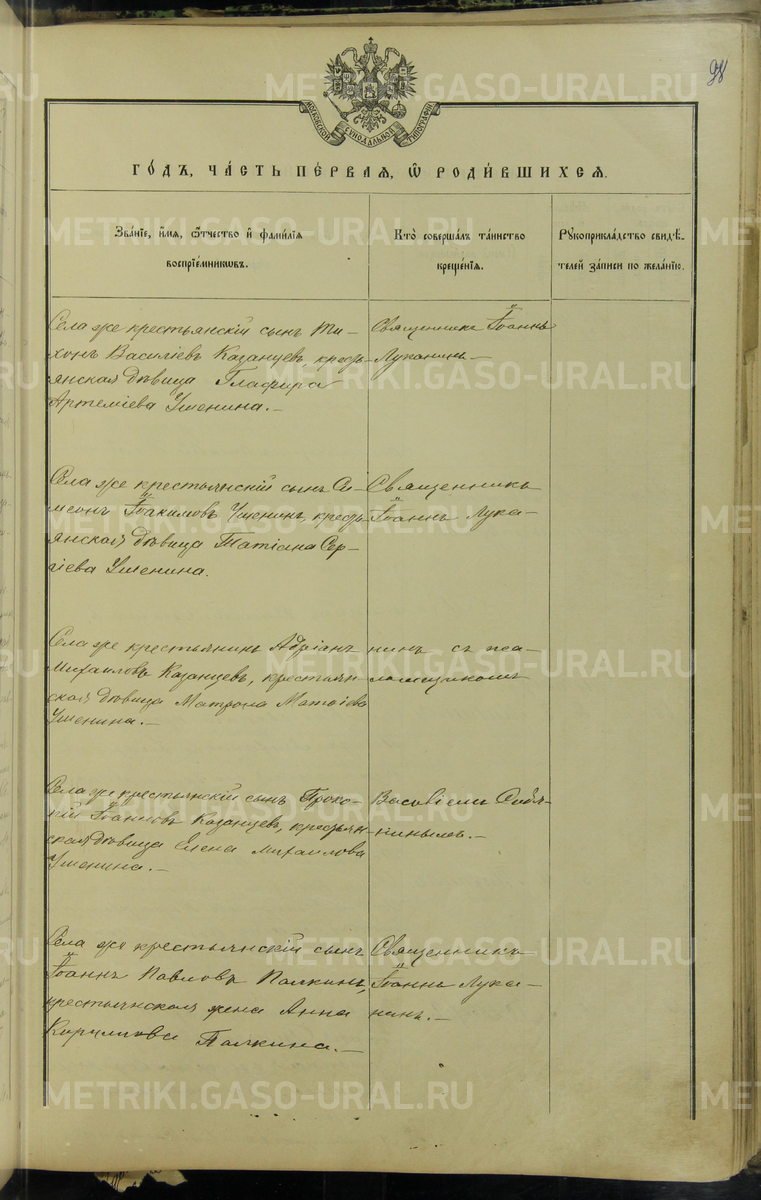 98
МОСКОВСКОЙ СУНОДАЛЬНОЙ ТИПОГРАФИИ
ГО́ДЪ, ЧА́СТЬ ПЕ́РВАЯ, Ѡ҆ РОДИ́ВШИХСЯ.
Зва́нїе, и҆́мѧ, ѻ҆́тчество и҆ фами́лїѧ
воспрїе́мникѡвъ.
Кто̀ соверша́лъ та́инство
креще́нїѧ.
Рꙋкоприкла́дство свидѣ́-
телей за́писи по жела́нїю.
Села же крестьянскій сынъ Ти-
хонъ Василіевъ Казанцевъ, кресть-
янская дѣвица Глафира
Артеміева Ушенина.-
Священникъ Іоаннъ
Луканинъ.-
Села же крестьянскій сынъ Си-
меонъ Іоакимовъ Ушенинъ, кресть-
янская дѣвица Татіана Сер-
гіева Ушенина.
Священникъ
Іоаннъ Лука-
Села же крестьянинъ Адріанъ
Михаиловъ Казанцевъ, крестьян-
ская дѣвица Матрона Матѳіева
Ушенина.-
нинъ съ пса-
ломщикомъ
Села же крестьянскій сынъ Проко-
пій Іоанновъ Казанцевъ, крестьян-
ская дѣвица Елена Михаилова
Ушенина.-
Села же крестьянскій сынъ
Іоаннъ Павловъ Палкинъ,
крестьянская жена Анна
Кириллова Палкина.-
Священникъ
Іоаннъ Лука-
нинъ.-
METRIKI.GASO-URAL.RU